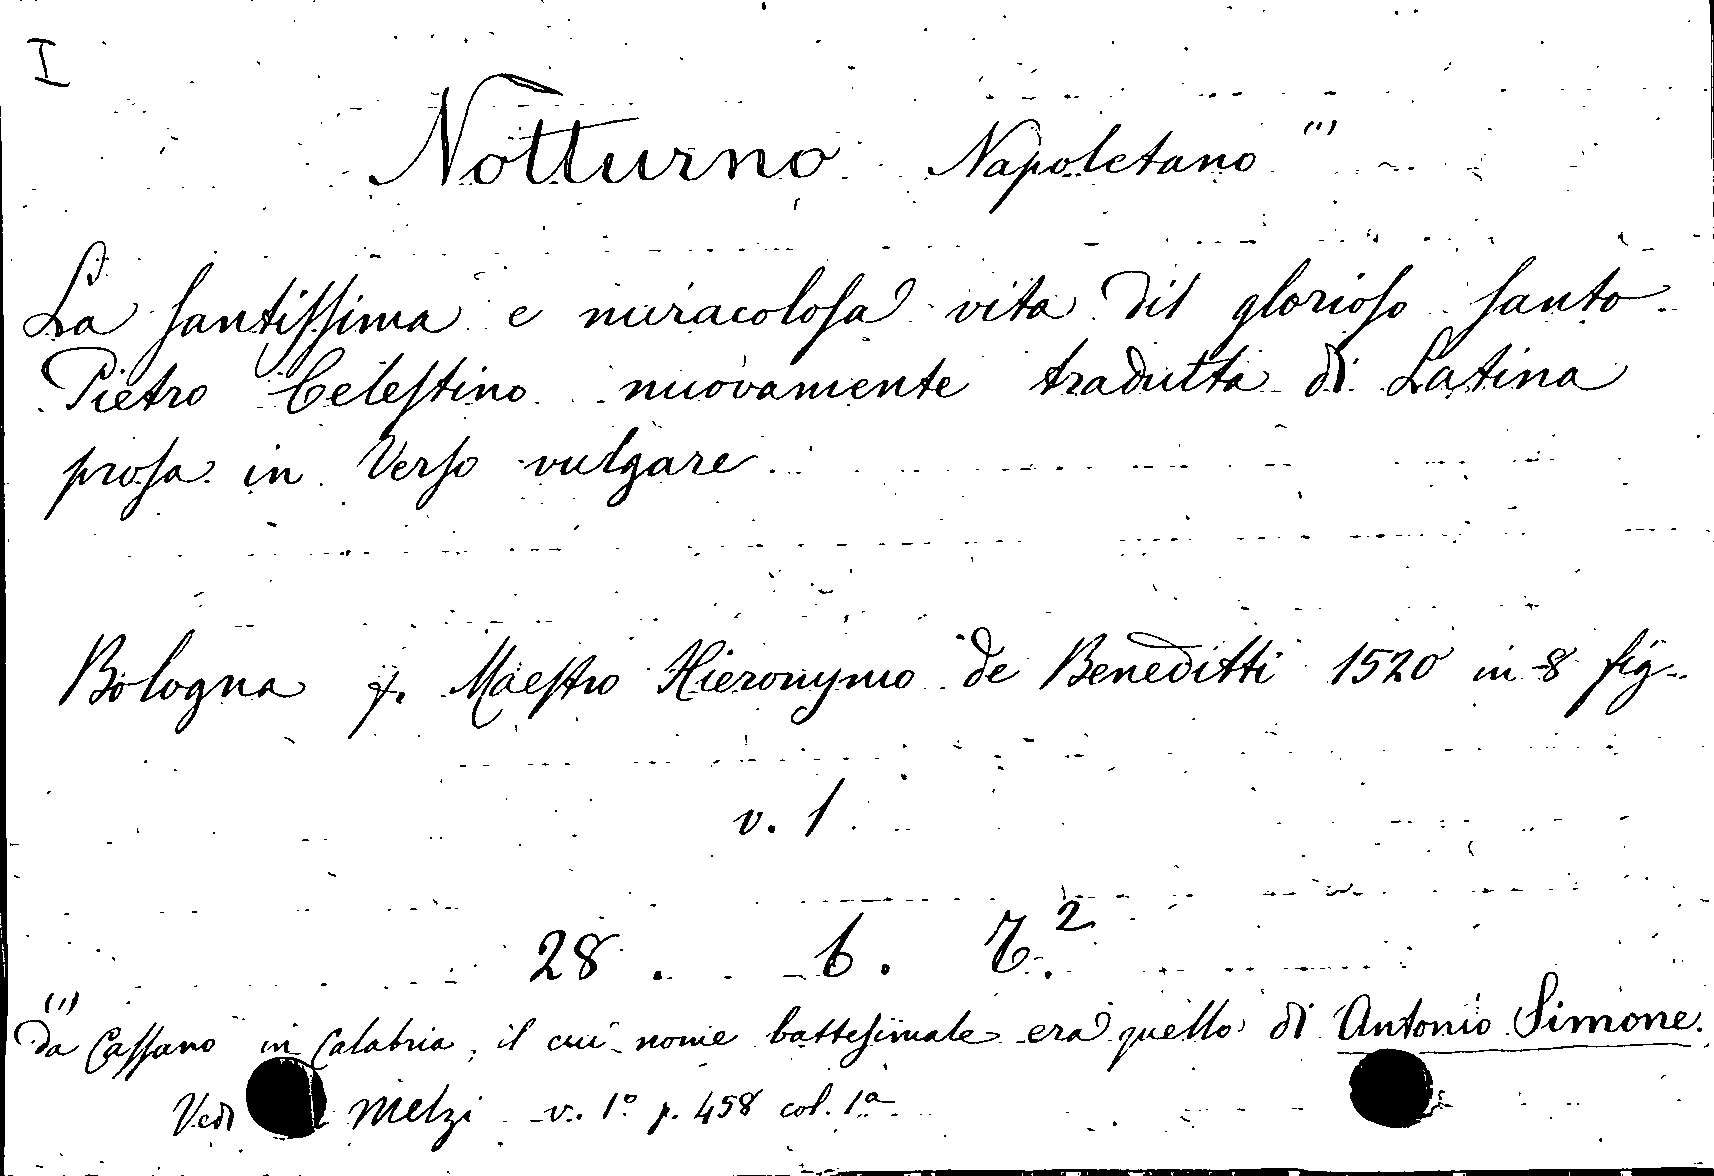 I
Notturno Napoletano (1)
La santissima e miracolosa vita dil glorioso santo
Pietro Celestino nuovamente tradutta di Latina
prosa in Verso vulgare
Bologna p. Maestro Hieronymo de Beneditti 1520 in 8 fig.
v. 1
28. 6. 2
(1)
da Cassano in Calabria, il cui nome battesimale era quello di Antonio Simone.
Vedi Melzi v. 1º p. 458 col. 1ª